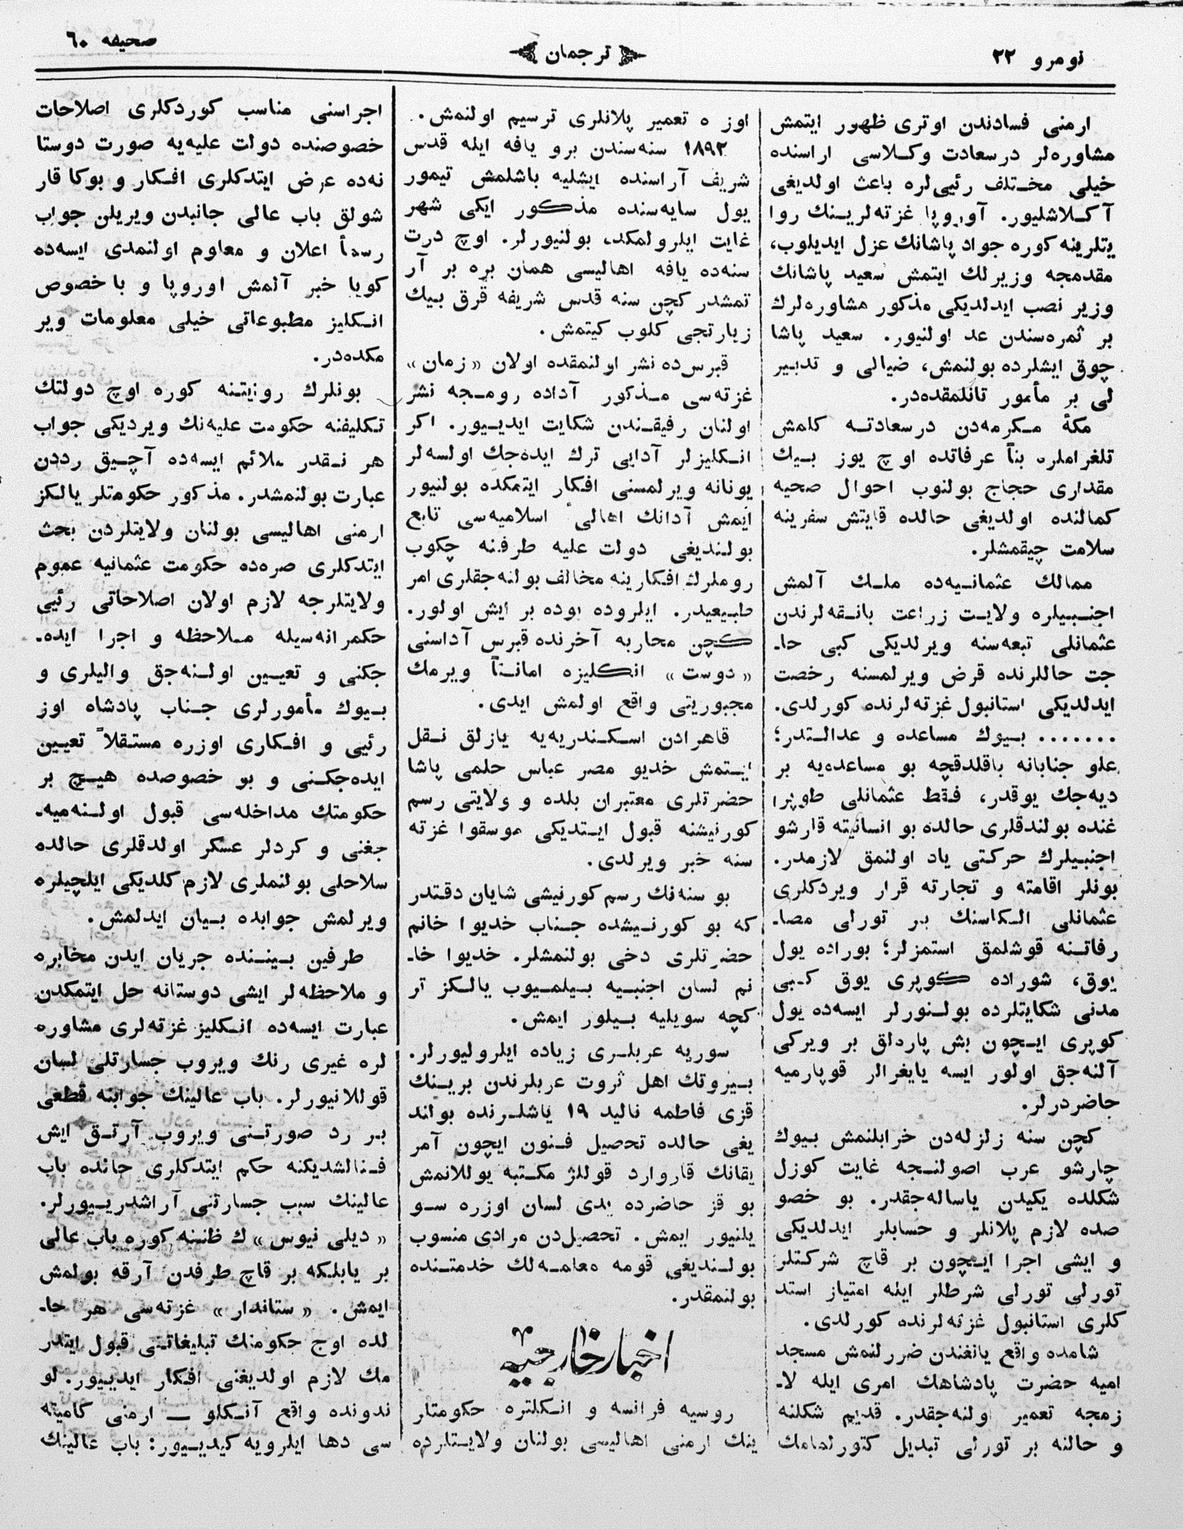 نومرو ٢٢
ترجمان
صحیفه ٦٠
ارمنی فسادندن اوتری ظهور ایتمش
مشاوره‌لر درسعادت وکلاسی اراسنده
خیلی مختلف رئیی‌لره باعث اولدیغی
آکلاشلیور. آوروپا غزته‌لرینك روا
یتلرینه کوره جواد پاشانك عزل ایدیلوب،
مقدمجه وزیرلك ایتمش سعید پاشانك
وزیر نصب ایدلدیکی مذکور مشاوره‌لرك
بر ثمره‌سندن عد اولنیور. سعید پاشا
چوق ایشلرده بولنمش، ضیالی و تدبیر
لی بر مأمور تانلمقده‌در.
مکهٔ مکرمه‌دن درسعادته کلمش
تلغراملره بناً عرفاتده اوچ یوز بیك
مقداری حجاج بولنوب احوال صحیه
کمالنده اولدیغی حالده قایتش سفرینه
سلامت چیقمشلر.
ممالك عثمانیه‌ده ملك آلمش
اجنبیلره ولایت زراعت بانقه‌لرندن
عثمانلی تبعه‌سنه ویرلدیکی کبی حا-
جت حاللرنده قرض ویرلمسنه رخصت
ایدلدیکی استانبول غزته‌لرنده کورلدی.
....... بیوك مساعده و عدالتدر؛
علو جنابانه باقلدقچه بو مساعده‌یه بر
دیه‌جك یوقدر، فقط عثمانلی طوپرا
غنده بولندقلری حالده بو انسانیته قارشو
اجنبیلرك حرکتی یاد اولنمق لازمدر.
بونلر اقامته و تجارته قرار ویردکلری
عثمانلی الکاسنك بر تورلی مصا-
رفاتنه قوشلمق استمزلر؛ بوراده یول
یوق، شوراده کوپری یوق کبی
مدنی شکایتلرده بولنورلر ایسه‌ده یول
کوپری ایچون بش پاره‌لق بر ویرکی
آلنه‌جق اولور ایسه یایغرالر قوپارمیه
حاضردرلر.
کچن سنه زلزله‌دن خرابلنمش بیوك
چارشو عرب اصولنجه غایت کوزل
شکلده یکیدن یاساله‌جقدر. بو خصو
صده لازم پلانلر و حسابلر ایدلدیکی
و ایشی اجرا ایچون بر قاچ شرکتلر
تورلی تورلی شرطلر اینه امتیاز استد
کلری استانبول غزته‌لرنده کورلدی.
شامده واقع یانغندن ضررلنمش مسجد
امیه حضرت پادشاهك امری ایله لا-
زمجه تعمیر اولنه‌جقدر. قدیم شکلنه
و حالنه بر تورلی تبدیل کتورلمامك
اوزره تعمیر پلانلری ترسیم اولنمش.
١٨٩٢ سنه‌سندن برو یافه ایله قدس
شریف آراسنده ایشلیه باشلمش تیمور
یول سایه‌سنده مذکور ایکی شهر
غایت ایلرولمکده بولنیورلر. اوچ درت
سنه‌ده یافه اهالیسی همان بره بر آر
تمشدر کچن سنه قدس شریفه قرق بیك
زیارتجی کلوب کیتمش.
قبرس‌ده نشر اولنمقده اولان «زمان»
غزته‌سی مذکور آداده رومجه نشر
اولنان رفیقندن شکایت ایدییور. اکر
انکلیزلر آدایی ترك ایده‌جك اولسه‌لر
یونانه ویرلمسنی افکار ایتمکده بولنیور
ایمش آدانك اهالیٔ اسلامیه‌سی تابع
بولندیغی دولت علیه طرفنه چکوب
روملرك افکارینه مخالف بولنه‌جقلری امر
طبیعیدر. ایلروده بوده بر ایش اولور.
کچن محاربه آخرنده قبرس آداسنی
«دوست» انکلیزه امانتاً ویرمك
مجبوریتی واقع اولمش ایدی.
قاهرادن اسکندریه‌یه یازلق نقل
ایتمش خدیو مصر عباس حلمی پاشا
حضرتلری معتبران بلده و ولایتی رسم
کورنیشنه قبول ایتدیکی موسقوا غزته
سنه خبر ویرلدی.
بو سنه‌نك رسم کورنیشی شایان دقتدر
که بو کورنیشده جناب خدیوا خانم
حضرتلری دخی بولنمشلر. خدیوا خا-
نم لسان اجنبیه بیلمیوب یالکز تر
کچه سویلیه بیلور ایمش.
سوریه عربلری زیاده ایلرولیورلر.
بیروتك اهل ثروت عربلرندن برینك
قزی فاطمه نالید ١٩ یاشلرنده بولند
یغی حالده تحصیل فنون ایچون آمر
یقانك قاروارد قوللژ مکتبه یوللانمش
بو قز حاضرده یدی لسان اوزره سو
یلنیور ایمش. تحصیل‌دن مرادی منسوب
بولندیغی قومه معلمه‌لك خدمتنده
بولنمقدر.
اخبار خارجیه
روسیه فرانسه و انکلتره حکومتلر
ینك ارمنی اهالیسی بولنان ولایتلرده
اجراسنی مناسب کوردکلری اصلاحات
خصوصنده دولت علیه‌یه صورت دوستا
نه‌ده عرض ایتدکلری افکار و بوکا قار
شولق باب عالی جانبدن ویریلن جواب
رسماً اعلان و معلوم اولنمدی ایسه‌ده
کویا خبر آلمش اوروپا و با خصوص
انکلیز مطبوعاتی خیلی معلومات ویر
مکده‌در.
بونلرك روایتنه کوره اوچ دولتك
تکلیفنه حکومت علیه‌نك ویردیکی جواب
هر نقدر ملائم ایسه‌ده آچیق رددن
عبارت بولنمشدر. مذکور حکومتلر یالکز
ارمنی اهالیسی بولنان ولایتلردن بحث
ایتدکلری صره‌ده حکومت عثمانیه عموم
ولایتلرجه لازم اولان اصلاحاتی رئیی
حکمرانه‌سیله ملاحظه و اجرا ایده-
جکنی و تعیین اولنه‌جق والیلری و
بیوك مأمورلری جناب پادشاه اوز
رئیی و افکاری اوزره مستقلاً تعیین
ایده‌جکنی و بو خصوصده هیچ بر
حکومتك مداخله‌سی قبول اولنه‌میه-
جغنی و کردلر عسکر اولدقلری حالده
سلاحلی بولنملری لازم کلدیکی ایلچیلره
ویرلمش جوابده بیان ایدلمش.
طرفین بیننده جریان ایدن مخابره
و ملاحظه‌لر ایشی دوستانه حل ایتمکدن
عبارت ایسه‌ده انکلیز غزته‌لری مشاوره
لره غیری رنك ویروب جسارتلی لسان
قوللانیورلر. باب عالینك جوابنه قطعی
بر رد صورتنی ویروب آرتق ایش
فنالشدیکنه حکم ایتدکلری جانده باب
عالینك سبب جسارتنی آراشدرییورلر.
«دیلی نیوس» ك ظننه کوره باب عالی
بر یابلکه بر قاچ طرفدن آرقه بولمش
ایمش. «ستاندار» غزته‌سی هر حا-
لده اوچ حکومتك تبلیغاتنی قبول ایتدر
مك لازم اولدیغنی افکار ایدییور. لو
ندونده واقع آنکلو — ارمنی کامیته
سی دها ایلرویه کیدییور: باب عالینك